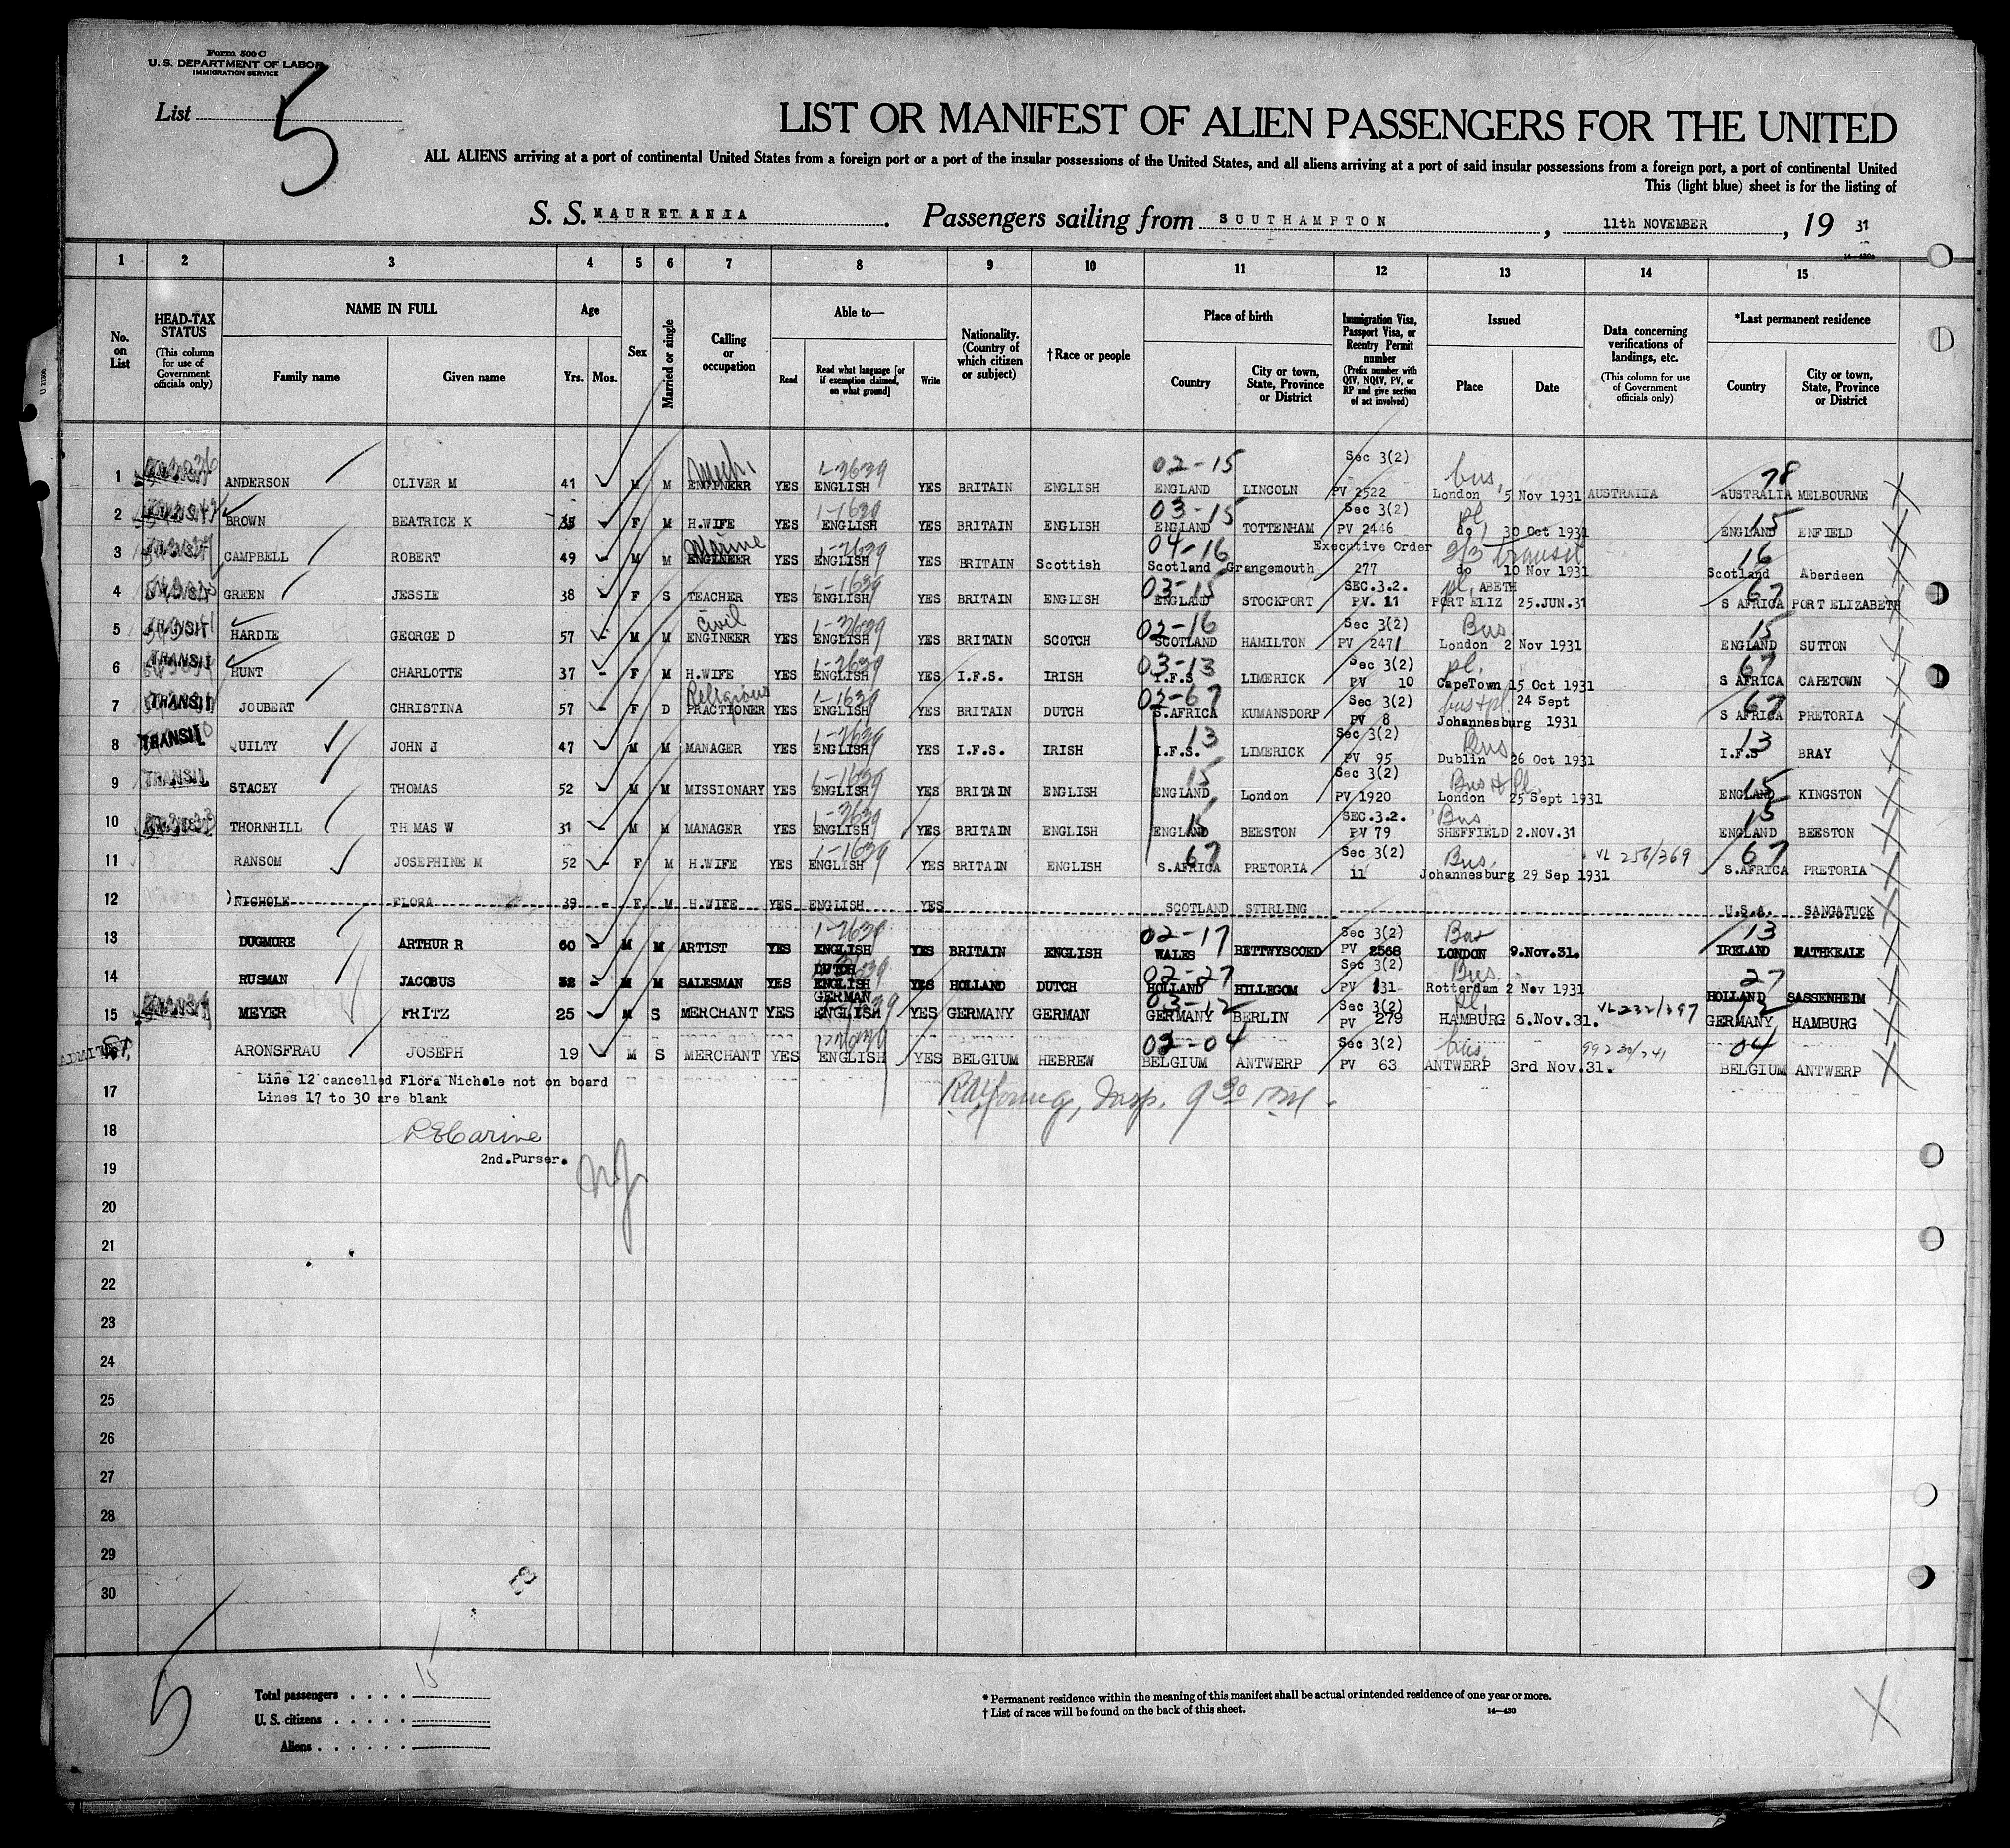 Form 500 C
U. S. DEPARTMENT OF LABOR
IMMIGRATION SERVICE
List 5
LIST OR MANIFEST OF ALIEN PASSENGERS FOR THE UNITED
ALL ALIENS arriving at a port of continental United States from a foreign port or a port of the insular possessions of the United States, and all aliens arriving at a port of said insular possessions from a foreign port, a port of continental United
This (light blue) sheet is for the listing of
S. S. MAURETANIA. Passengers sailing from SOUTHAMPTON, 11th NOVEMBER, 19 31
1 2 3 4 5 6 7 8 9 10 11 12 13 14 15
No. on List
HEAD-TAX STATUS (This column for use of Government officials only)
NAME IN FULL
Family name Given name
Age
Yrs. Mos.
Sex
Married or single
Calling or occupation
Able to—
Read Read what language [or if exemption claimed, on what ground] Write
Nationality. (Country of which citizen or subject)
†Race or people
Place of birth
Country City or town, State, Province or District
Immigration Visa, Passport Visa, or Reentry Permit number (Prefix number with QIV, NQIV, PV, or RP and give section of act involved)
Issued
Place Date
Data concerning verifications of landings, etc. (This column for use of Government officials only)
*Last permanent residence
Country City or town, State, Province or District
1-3639 02-15 Sec 3(2) bus, 78
1 ANDERSON OLIVER M 41 M M ENGINEER YES ENGLISH YES BRITAIN ENGLISH ENGLAND LINCOLN PV 2522 London 5 Nov 1931 AUSTRALIA AUSTRALIA MELBOURNE
1-1639 03-15 Sec 3(2) pl, 15
2 BROWN BEATRICE K 35 F M H.WIFE YES ENGLISH YES BRITAIN ENGLISH ENGLAND TOTTENHAM PV 2446 do 30 Oct 1931 ENGLAND ENFIELD
Marine 04-16 Executive Order 3/3 transit 16
3 CAMPBELL ROBERT 49 M M ENGINEER YES ENGLISH YES BRITAIN Scottish Scotland Grangemouth 277 do 10 Nov 1931 Scotland Aberdeen
1-1639 03-15 SEC.3.2. pl, ABETH 67
4 GREEN JESSIE 38 F S TEACHER YES ENGLISH YES BRITAIN ENGLISH ENGLAND STOCKPORT PV. 11 PORT ELIZ 25.JUN.31 S AFRICA PORT ELIZABETH
TRANSIT Civil 1-3639 02-16 Sec 3(2) Bus 15
5 HARDIE GEORGE D 57 M M ENGINEER YES ENGLISH YES BRITAIN SCOTCH SCOTLAND HAMILTON PV 2471 London 2 Nov 1931 ENGLAND SUTTON
TRANSIT 1-2639 03-13 Sec 3(2) pl, 67
6 HUNT CHARLOTTE 37 F M H.WIFE YES ENGLISH YES I.F.S. IRISH I.F.S LIMERICK PV 10 CapeTown 15 Oct 1931 S AFRICA CAPETOWN
TRANSIT Religious 1-1639 02-67 Sec 3(2) bus & pl. 24 Sept 67
7 JOUBERT CHRISTINA 57 F D PRACTIONER YES ENGLISH YES BRITAIN DUTCH S.AFRICA KUMANSDORP PV 8 Johannesburg 1931 S AFRICA PRETORIA
TRANSIT 1-2639 13 Sec 3(2) Bus 13
8 QUILTY JOHN J 47 M M MANAGER YES ENGLISH YES I.F.S. IRISH I.F.S. LIMERICK PV 95 Dublin 26 Oct 1931 I.F.S BRAY
TRANSIT 1-1639 15 Sec 3(2) Bus & Pl. 15
9 STACEY THOMAS 52 M M MISSIONARY YES ENGLISH YES BRITAIN ENGLISH ENGLAND London PV 1920 London 25 Sept 1931 ENGLAND KINGSTON
1-3639 15 SEC.3.2. Bus 15
10 THORNHILL THMAS W 31 M M MANAGER YES ENGLISH YES BRITAIN ENGLISH ENGLAND BEESTON PV 79 SHEFFIELD 2.NOV.31 ENGLAND BEESTON
1-1639 67 Sec 3(2) Bus, VL 256/369 67
11 RANSOM JOSEPHINE M 52 F M H.WIFE YES ENGLISH YES BRITAIN ENGLISH S.AFRICA PRETORIA 11 Johannesburg 29 Sep 1931 S.AFRICA PRETORIA
12 NICHOLE FLORA 39 F M H.WIFE YES ENGLISH YES SCOTLAND STIRLING U.S.A. SANGATUCK
1-2639 02-17 Sec 3(2) Bus 13
13 DUGMORE ARTHUR R 60 M M ARTIST YES ENGLISH YES BRITAIN ENGLISH WALES BETTWYSCOED PV 2568 LONDON 9.Nov.31. IRELAND RATHKEALE
DUTCH 02-27 Sec 3(2) Bus, 27
14 RUSMAN JACOBUS 32 M M SALESMAN YES ENGLISH YES HOLLAND DUTCH HOLLAND HILLEGOM PV 131 Rotterdam 2 Nov 1931 HOLLAND SASSENHEIM
TRANSIT GERMAN 03-12 Sec 3(2) pl, VL 232/397 12
15 MEYER FRITZ 25 M S MERCHANT YES ENGLISH YES GERMANY GERMAN GERMANY BERLIN PV 279 HAMBURG 5.Nov.31. GERMANY HAMBURG
ADMITTED 02-04 Sec 3(2) bus, 04
ARONSFRAU JOSEPH 19 M S MERCHANT YES ENGLISH YES BELGIUM HEBREW BELGIUM ANTWERP PV 63 ANTWERP 3rd Nov.31. BELGIUM ANTWERP
Line 12 cancelled Flora Nichole not on board
17 Lines 17 to 30 are blank
Insp. 9 30
18
2nd.Purser.
19
20
21
22
23
24
25
26
27
28
29
30
5
15
Total passengers
U. S. citizens
Aliens
* Permanent residence within the meaning of this manifest shall be actual or intended residence of one year or more.
† List of races will be found on the back of this sheet.
14—430